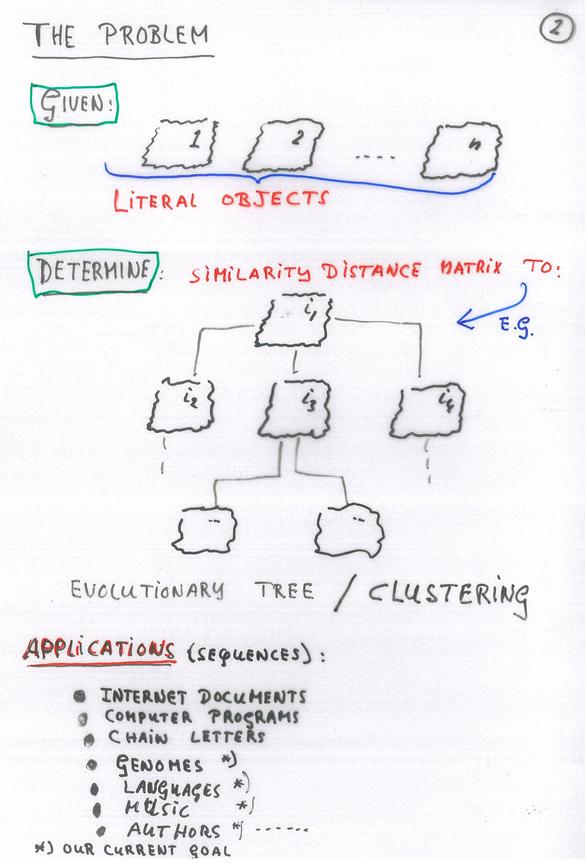 THE PROBLEM
2
GIVEN:
1 2 .... n
LITERAL OBJECTS
DETERMINE: SIMILARITY DISTANCE MATRIX TO:
E.G.
i1
i2 i3 i4
... ...
EVOLUTIONARY TREE / CLUSTERING
APPLICATIONS (SEQUENCES):
• INTERNET DOCUMENTS
• COMPUTER PROGRAMS
• CHAIN LETTERS
• GENOMES *)
• LANGUAGES *)
• MUSIC *)
• AUTHORS *) ......
*) OUR CURRENT GOAL